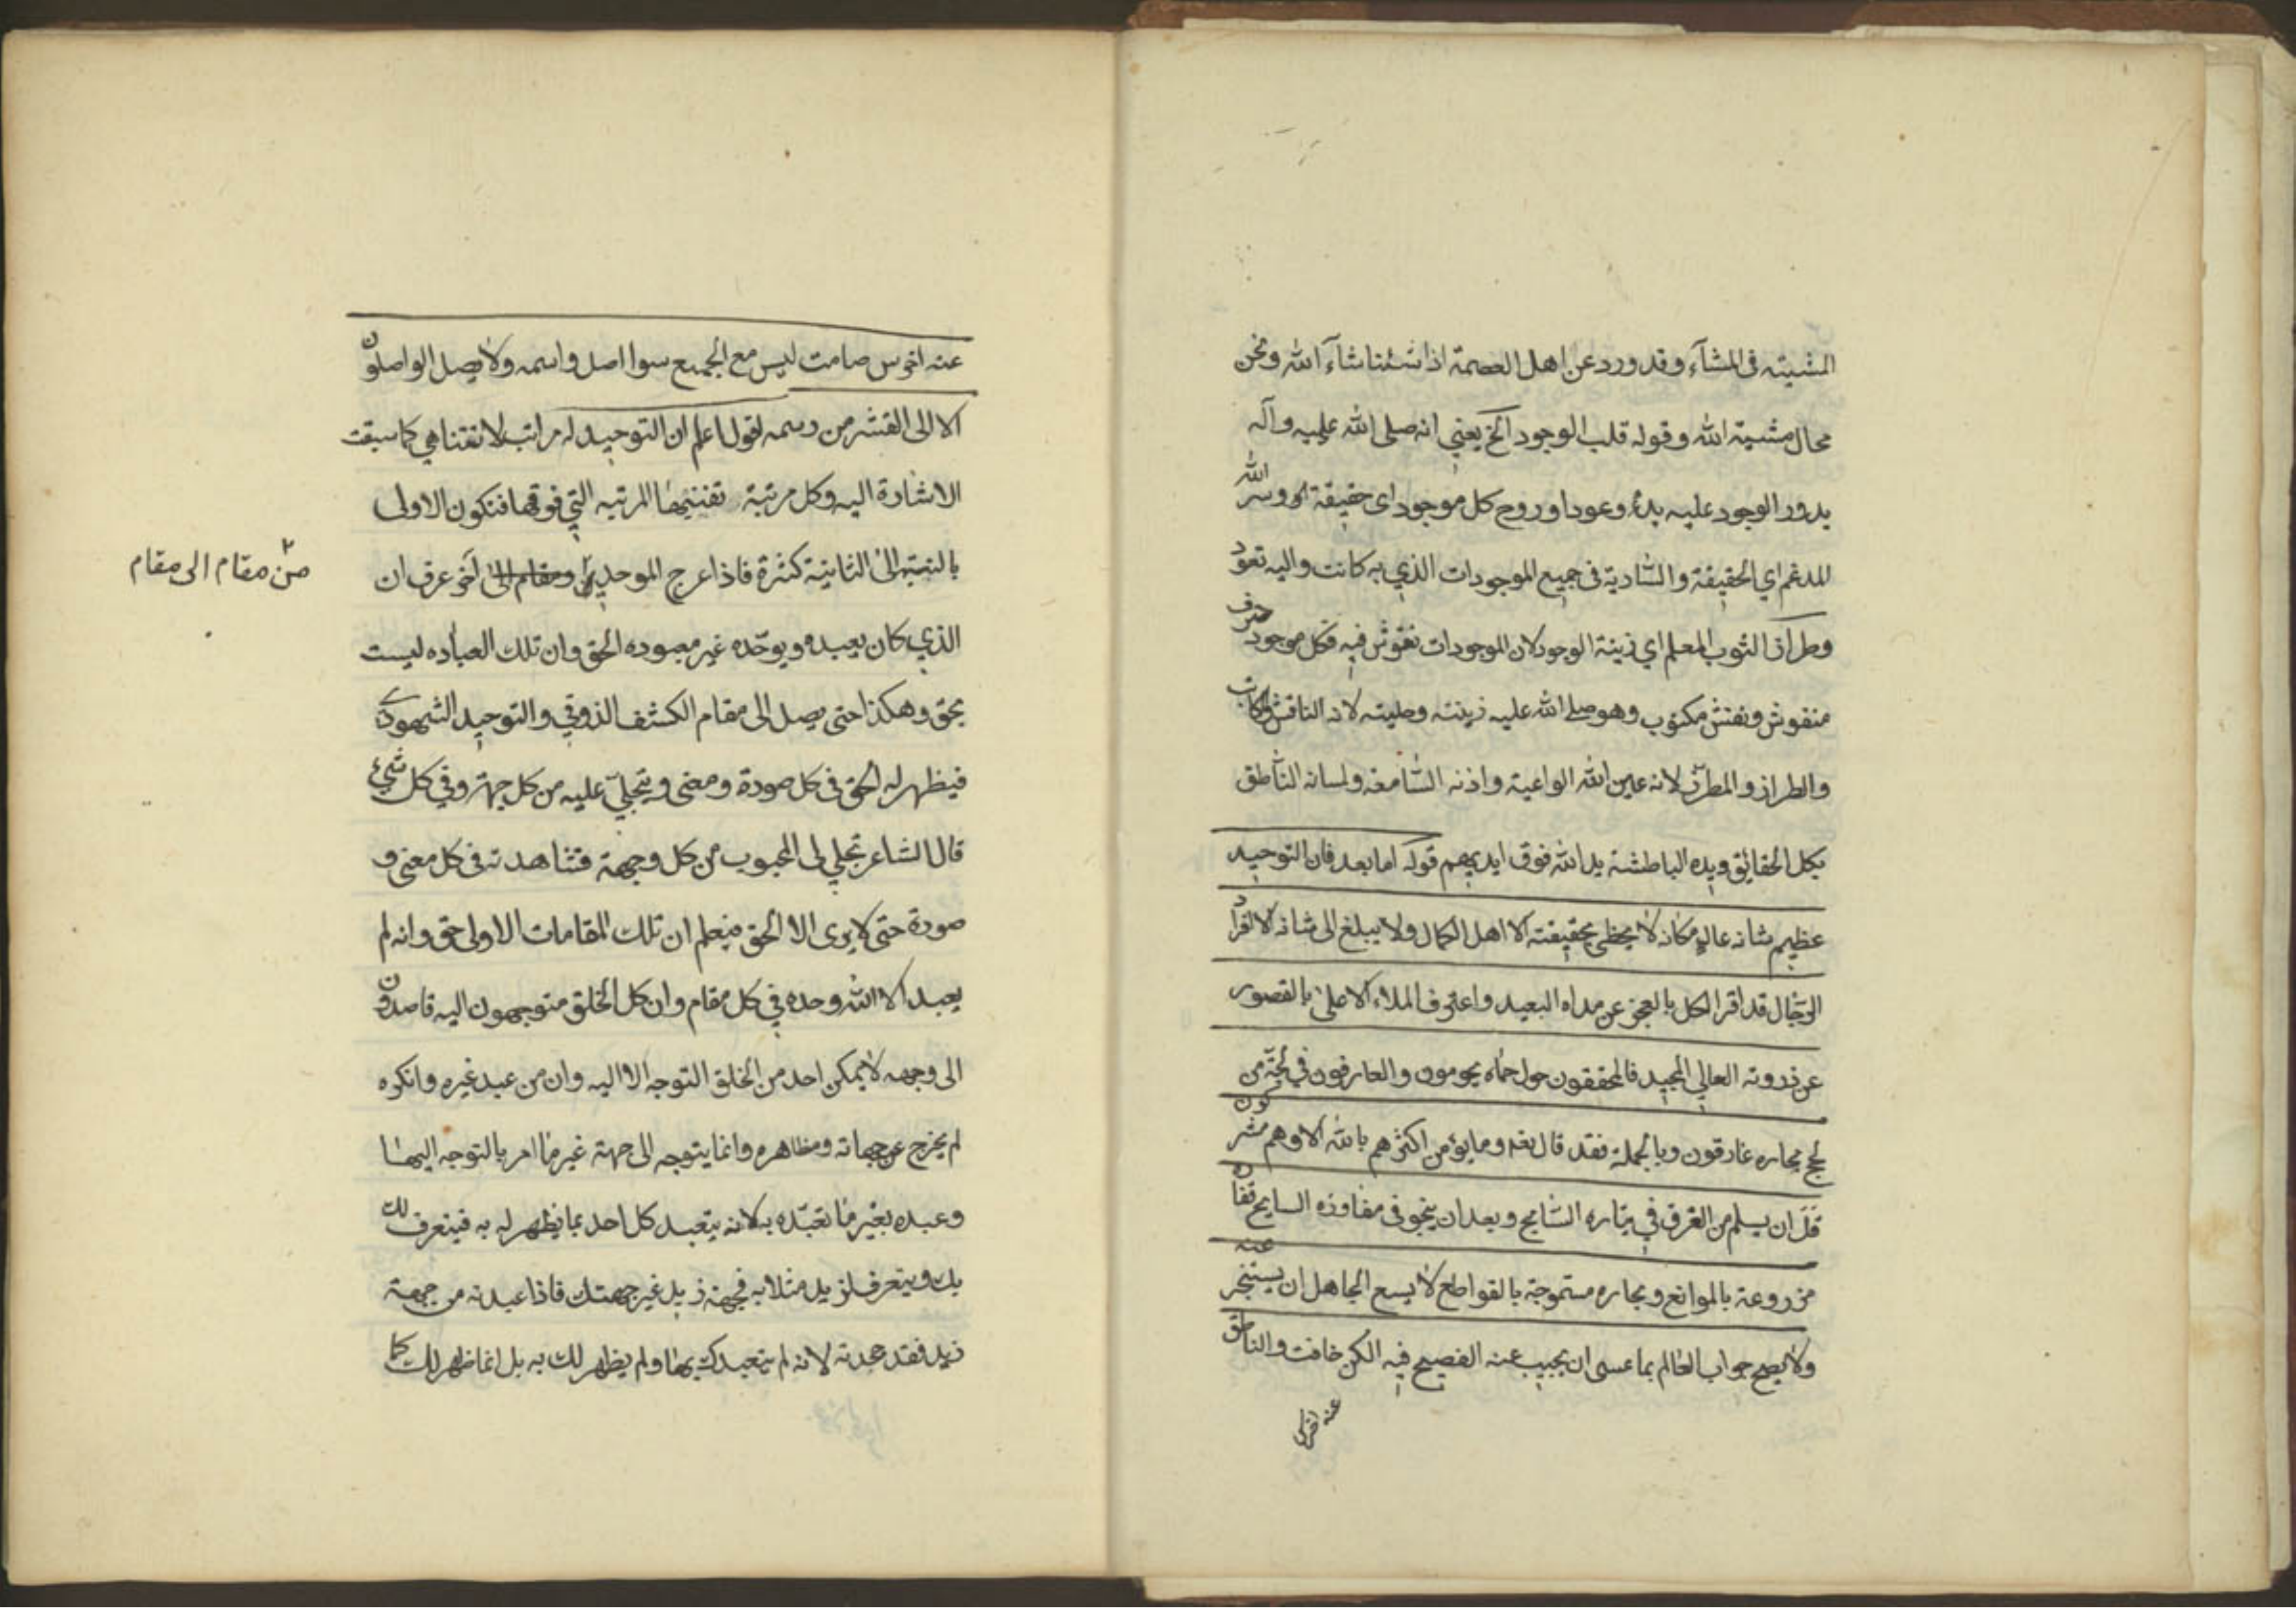 المشيته في المشآء وقد ورد عن اهل العصمة اذا شئنا شآء الله ونحن
محال مشية الله وقوله قلب الوجود الخ يعني انه صلى الله عليه وآله
يدور الوجود عليه بدءً وعودا وروح كل موجود اى حقيقة وسر الله
المدغم اي الحقيقة والسّارية فى جميع الموجودات الذي به كانت واليه تعود
وطراز الثوب المعلم اي زينة الوجود لان الموجودات نقوش فيه فكل موجود حرف
منقوش ونقش مكتوب وهو صلى الله عليه زينته وحليته لانه الناقش والكاتب
والطراز والمطرّز لانه عين الله الواعية واذنه السّامعة ولسانه النّاطق
بكل الحقايق ويده الباطشة يد الله فوق ايديهم قوله اما بعد فان التوحيد
عظيم شانه عالٍ مكانه لا يحظى بحقيقته الا اهل الكمال ولا يبلغ الى شانه الا افراد
الرّجال قد اقر الكل بالعجز عن مداه البعيد واعترف الملاء الاعلى بالقصور
عن ذروته العالي المجيد فالمحققون حول حماه يحومون والعارفون في لجّة من
لجج بحاره غارقون وبالجملة فقد قال تعه وما يؤمن اكثرهم بالله الا وهم مشركون
قَلَّ ان يسلم من الغرق في تيّاره الشّامخ وبعد ان ينجو فى مفاوزه السايح
مزروعة بالموانع وبحاره مستموجة بالقواطع لا يسع الجاهل ان يستخبر عنه
ولا يصح جواب العالم بما عسى ان يجيب عنه الفصيح فيه الكن خافت والناطق
عنه اخرس
عنه اخرس صامت ليس مع الجميع سوا اصل واسمه ولا يصل الواصلون
الا الى القشر من رسمه اقول اعلم ان التوحيد له مراتب لا تتناهي كما سبقت
الاشارة اليه وكل مرتبة تفنيها المرتبه التي فوقها فتكون الاولى
بالنسبة الى الثانية كثرة فاذا عرج الموحد ومقام الى آخر عرف ان
من مقام الى مقام
الذي كان يعبده ويوحّده غير معبوده الحق وان تلك العباده ليست
بحق وهكذا حتى يصل الى مقام الكشف الذوقي والتوحيد الشهودي
فيظهر له الحق فى كل صورة ومعنى ويتجلّى عليه من كل جهة وفي كل شيء
قال الشاعر تجلي لى المحبوب من كل وجهة فشاهدته فى كل معنى و
صورة حتى لا يرى الا الحق فيعلم ان تلك المقامات الاولى حق وانه لم
يعبد الا الله وحده في كل مقام وان كل الخلق متوجهون اليه قاصدون
الى وجهه لا يمكن احد من الخلق التوجه الا اليه وان من عبد غيره وانكره
لم يخرج عن جهاته ومظاهره وانما يتوجه الى جهة غير ما امر بالتوجه اليها
وعبده بغير ما تعبّده به لانه يتعبد كل احد بما يظهر له به فيتعرف لك
بك ويتعرف لزيد مثلا به فجهة زيد غير جهتك فاذا عبدته من جهة
زيد فقد جحدته لانه لم يتعبدك بها ولم يظهر لك به بل انما ظهر لك كما